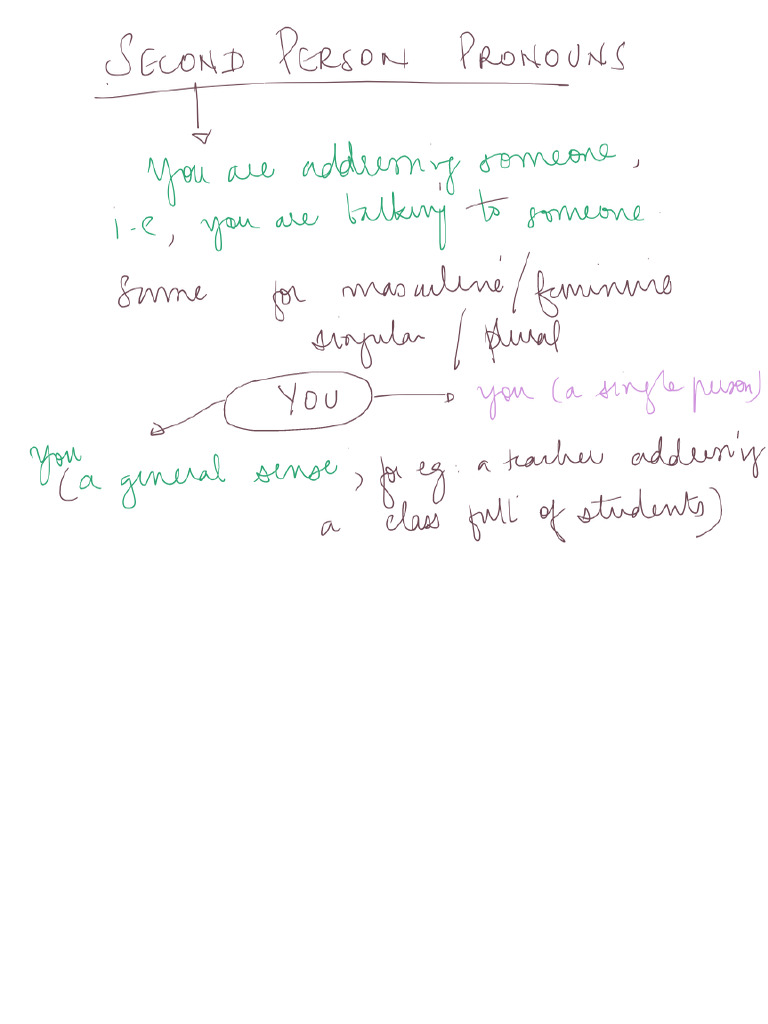 SECOND PERSON PRONOUNS
You are addressing someone,
i.e, you are talking to someone
Same for masculine / feminine
singular / plural
YOU
you (a single person)
you
(a general sense, for eg. a teacher addressing
a class full of students)